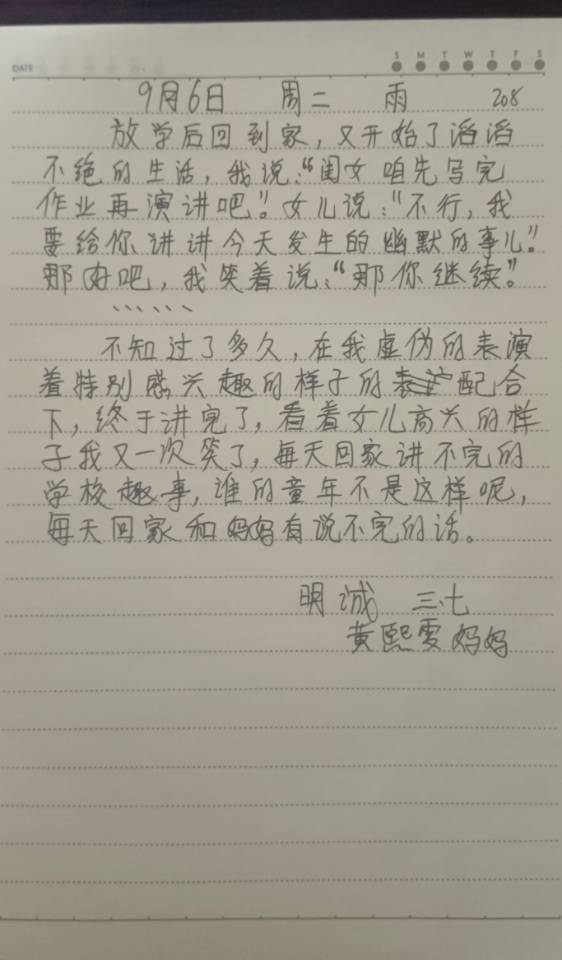 DATE
S M T W T F S
9月6日 周二 雨 208
放学后回到家，又开始了滔滔
不绝的生活，我说：“闺女咱先写完
作业再演讲吧”。女儿说：“不行，我
要给你讲讲今天发生的幽默的事儿”。
那好吧，我笑着说：“那你继续”。
、、、、、、
不知过了多久，在我虚伪的表演
着特别感兴趣的样子的配合
下，终于讲完了，看着女儿高兴的样
子我又一次笑了，每天回家讲不完的
学校趣事，谁的童年不是这样呢，
每天回家和妈妈有说不完的话。
明诚 三、七
黄熙雯妈妈